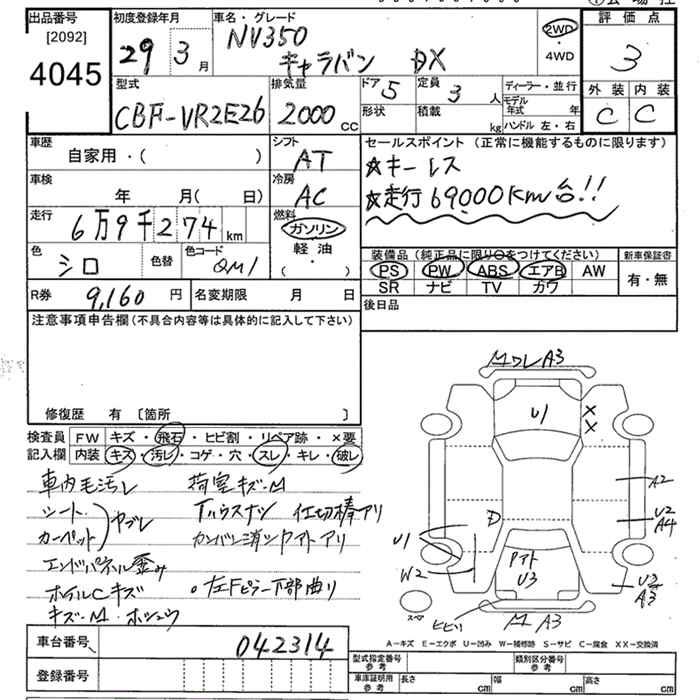 出品番号
[2092]
4045
初度登録年月
29 3月
車名・グレード
NV350
キャラバン DX
2WD
・
4WD
評価点
3
型式
CBF-VR2E26
排気量
2000cc
ドア 5
形状
定員 3人
積載 kg
ディーラー・並行
モデル年式 年
ハンドル 左・右
外装 内装
C C
車歴
自家用・( )
シフト
AT
車検
年 月( 日)
冷房
AC
走行
6万9千274km
燃料
ガソリン
軽油
( ・ )
色
シロ
色替
色コード
QM1
R券 9,160円
名変期限 月 日
セールスポイント (正常に機能するものに限ります)
☆キーレス
☆走行69000Km台!!
装備品(純正品に限り○をつけてください)
PS PW ABS エアB AW
SR ナビ TV カワ
新車保証書
有・無
後日品
注意事項申告欄(不具合内容等は具体的に記入して下さい)
修復歴 有 〔箇所 〕
検査員記入欄
FW キズ・飛石・ヒビ割・リペア跡・×要
内装 キズ・汚レ・コゲ・穴・スレ・キレ・破レ
車内毛汚レ
シート
カーペット
ヤブレ
エンドパネル歪み
ホイルCキズ
キズ・M・ホシュウ
荷室キズ・M
Tハウスナシ 仕切棒アリ
カンバン消シアトアリ
○左Fピラー下部曲り
MワレA3
U1
×
×
A2
U2
A4
D
U1
W2
アト
U3
U3
A3
スペア
ヒビ
M A3
A-キズ E-エクボ U-凹み W-補修跡 S-サビ C-腐食 XX-交換済
車台番号
042314
登録番号
型式指定番号
参考
類別区分番号
参考
車庫証明用
参考
長さ cm
幅 cm
高さ cm